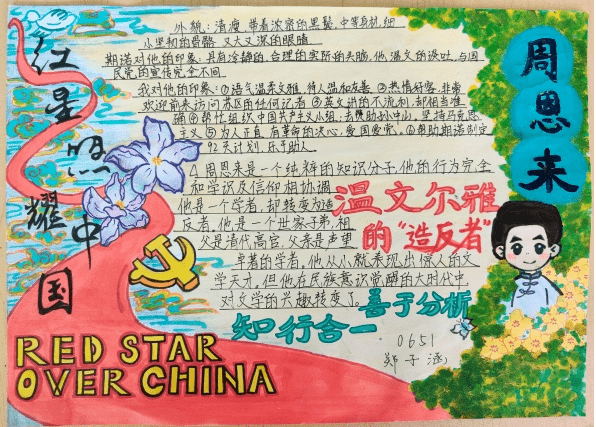 红星照耀中国
周恩来
外貌：清瘦，带着浓密的黑髯，中等身材，细
小坚韧的骨骼，又大又深的眼睛
期诺对他的印象：具有冷静的、合理的实际的头脑，他温文的谈吐，与国
民党的宣传完全不同
我对他的印象：①语气温柔文雅，待人温和友善 ②热情好客，非常
欢迎前来访问苏区的任何记者 ③英文讲的不流利，却相当准
确 ④帮忙组织中国共产主义小组，去帮助孙中山，坚持马克思
主义 ⑤为人正直，有革命的决心，爱国爱党。⑥帮助期诺制定
92天计划，乐于助人
周恩来是一个纯粹的知识分子，他的行为完全
和学识及信仰相协调
他是一个学者，却转变为造
反者，他是一个世家子弟，祖
父是清代高官，父亲是声望
卓著的学者。他从小就表现出惊人的文
学天才，但他在民族意识觉醒的大时代中，
对文学的兴趣转变了。
温文尔雅
的“造反者”
善于分析
知行合一
0651
郑子涵
RED STAR
OVER CHINA